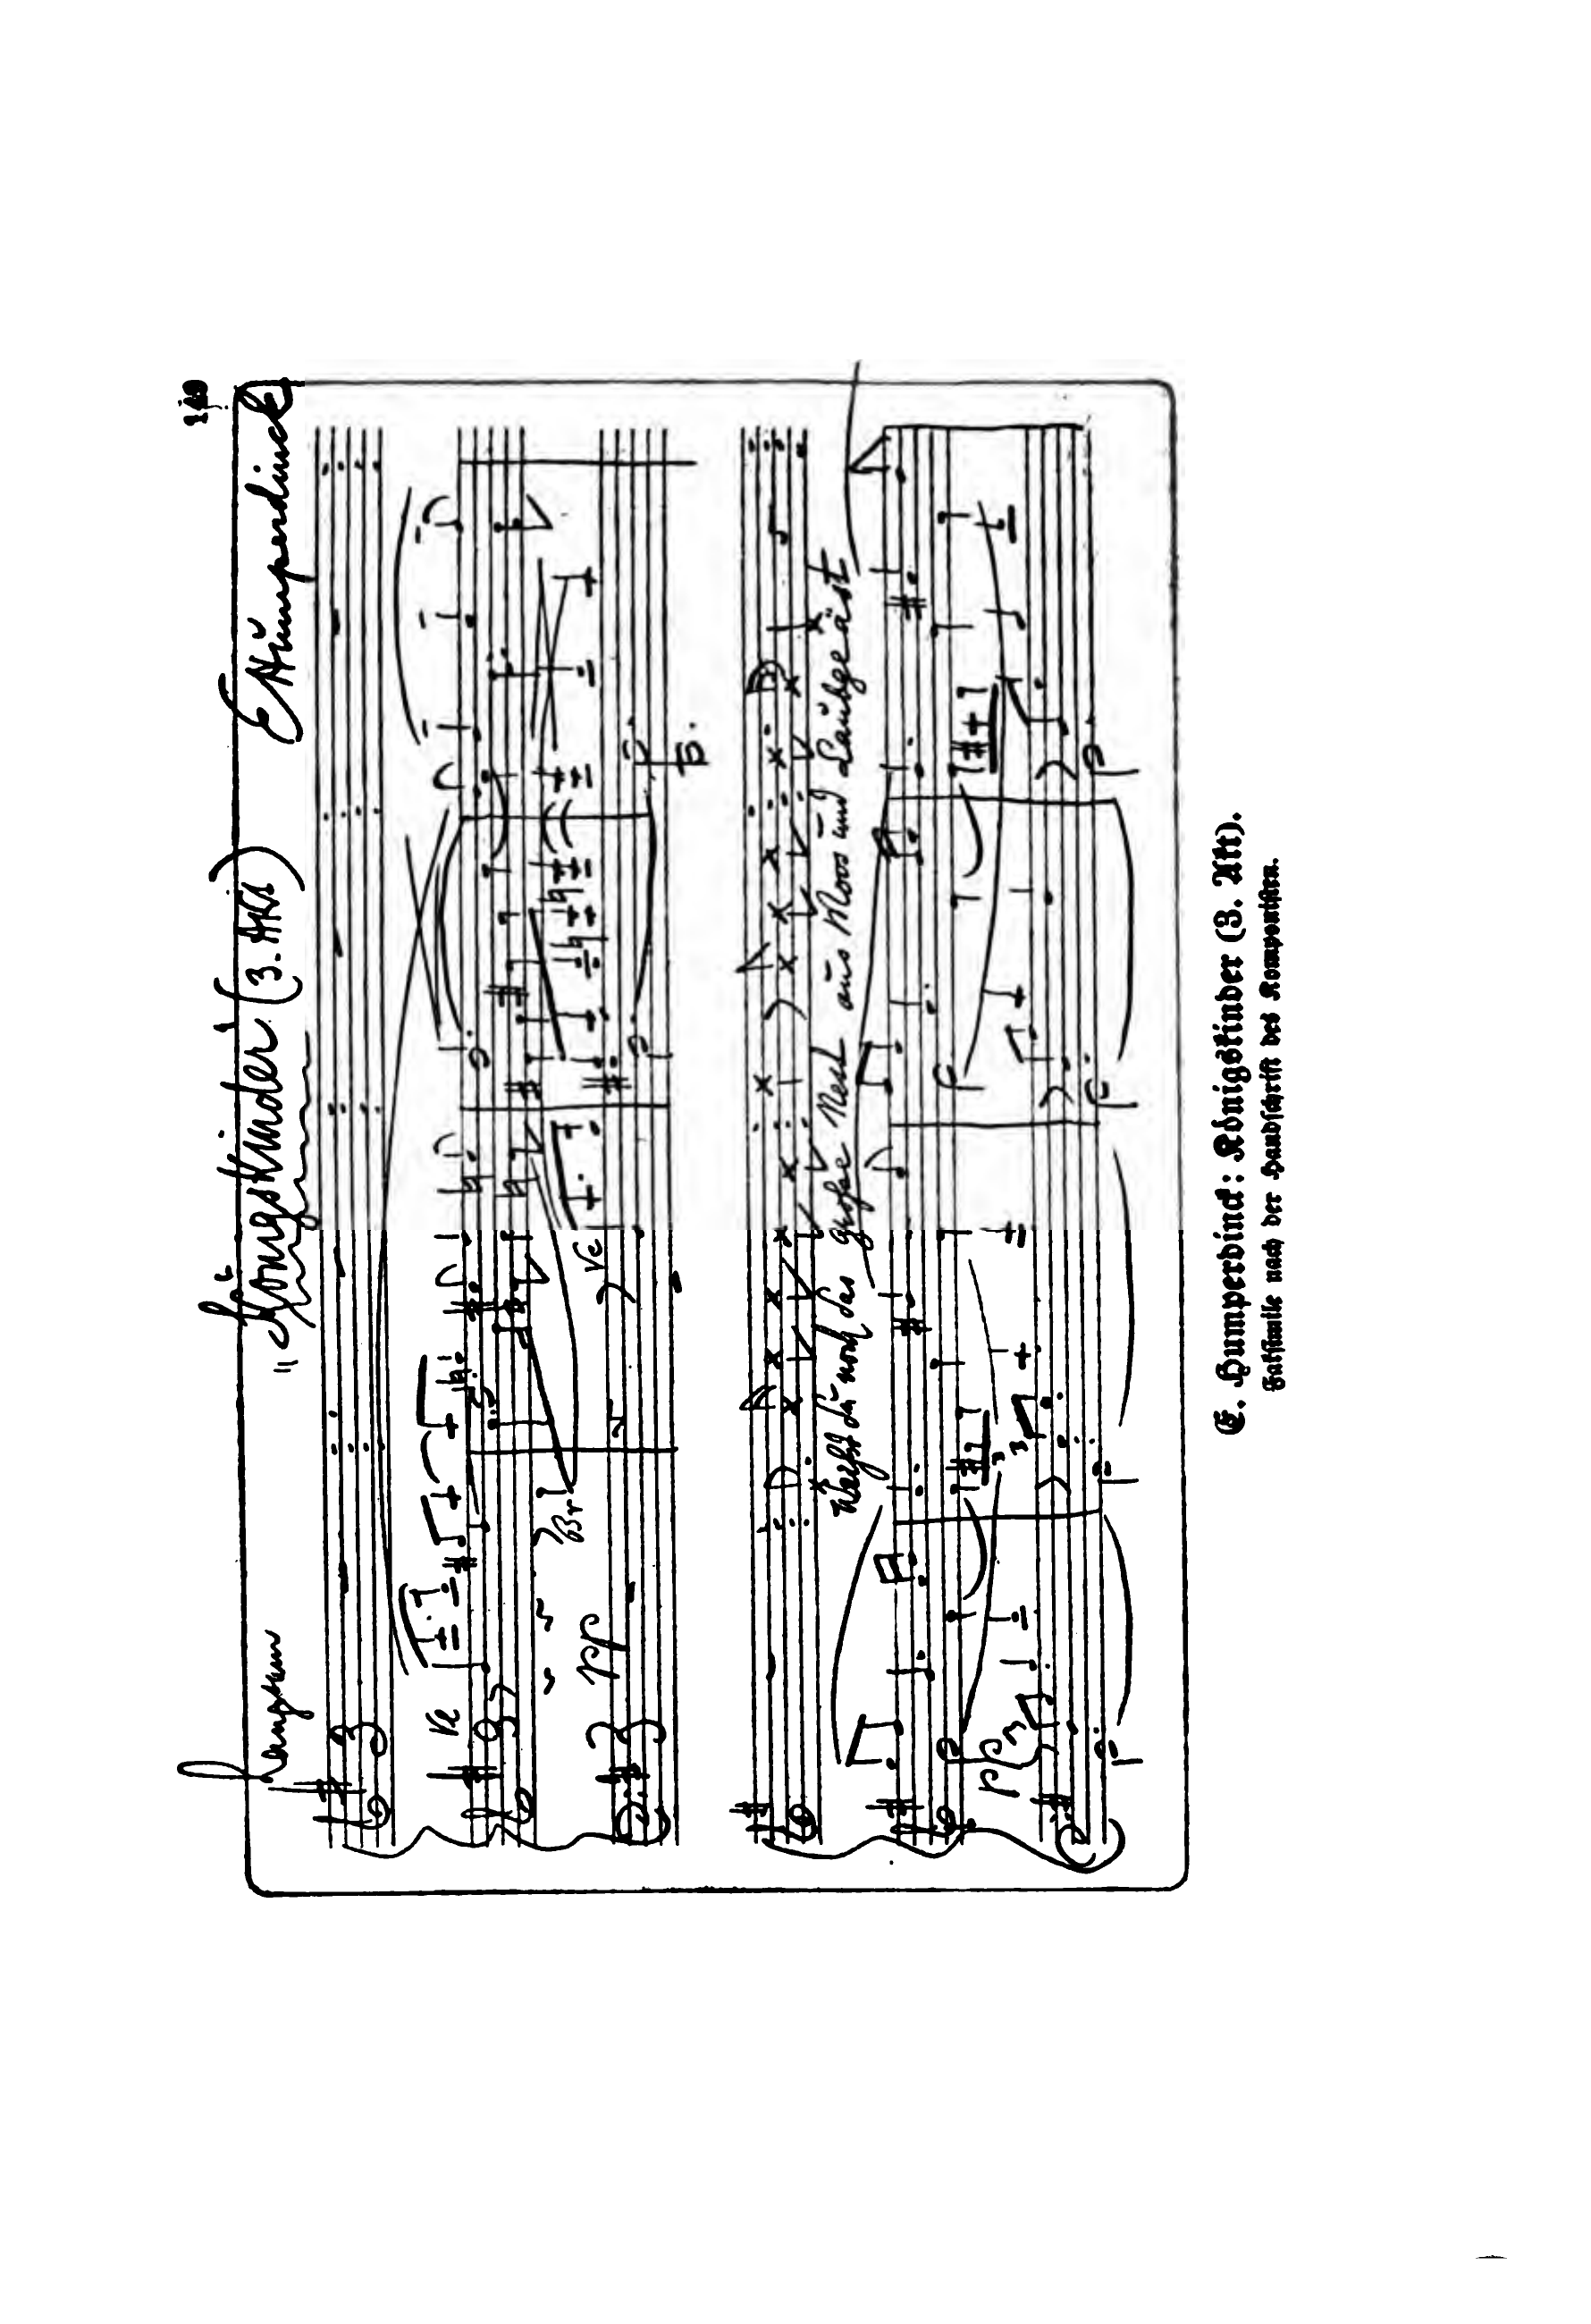 149
Langsam
"Königskinder" (3. Akt)
EHumperdinck
Ve
pp
Br
Vc
B.
Weißt du noch das große Nest aus Moos und Laubgeäst
pp
3
3
3
E. Humperdinck: Königskinder (3. Akt).
Faksimile nach der Handschrift des Komponisten.